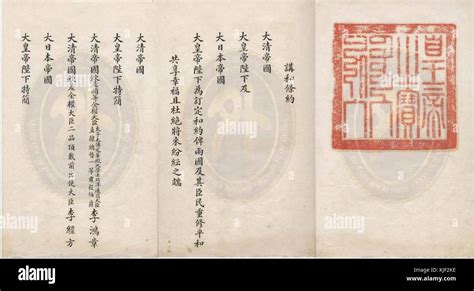 皇帝之寶
講和條約
大清帝國
大皇帝陛下及
大日本帝國
大皇帝陛下為訂定和約俾兩國及其臣民重修平和
共享幸福且杜絕將來紛紜之端
大清帝國
大皇帝陛下特簡
大清帝國欽差頭等全權大臣太子太傅文華殿大學士北洋通商大臣直隸總督一等肅毅伯爵李鴻章
大清帝國欽差全權大臣二品頂戴前出使大臣李經方
大日本帝國
大皇帝陛下特簡
alamy
alamy
alamy